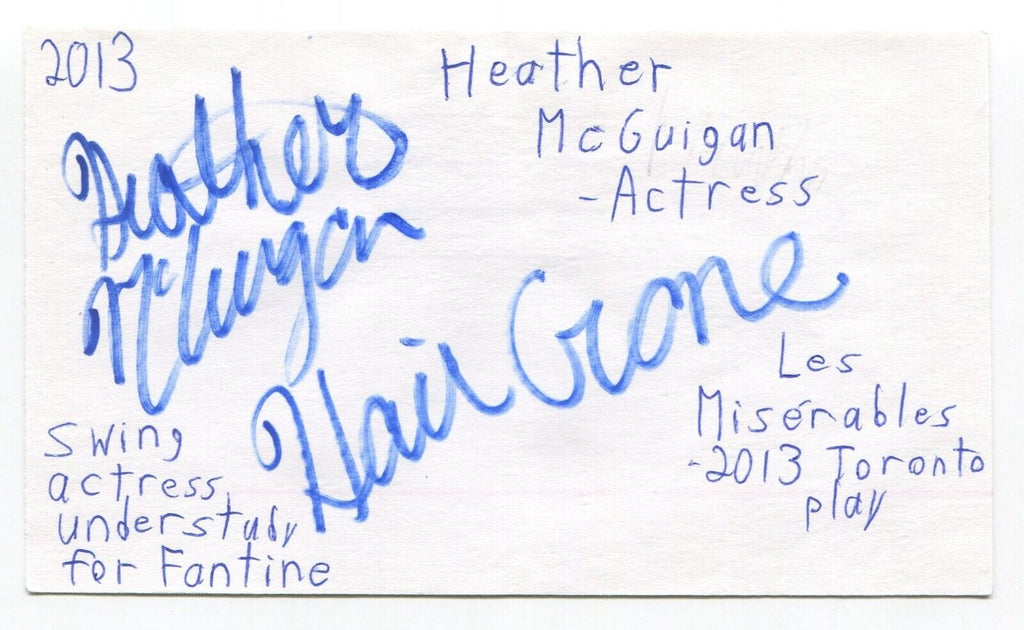 2013
Heather
McGuigan
-Actress
Heather
McGuigan
Hair Crone
Les
Misérables
-2013 Toronto
play
Swing
actress,
understudy
for Fantine